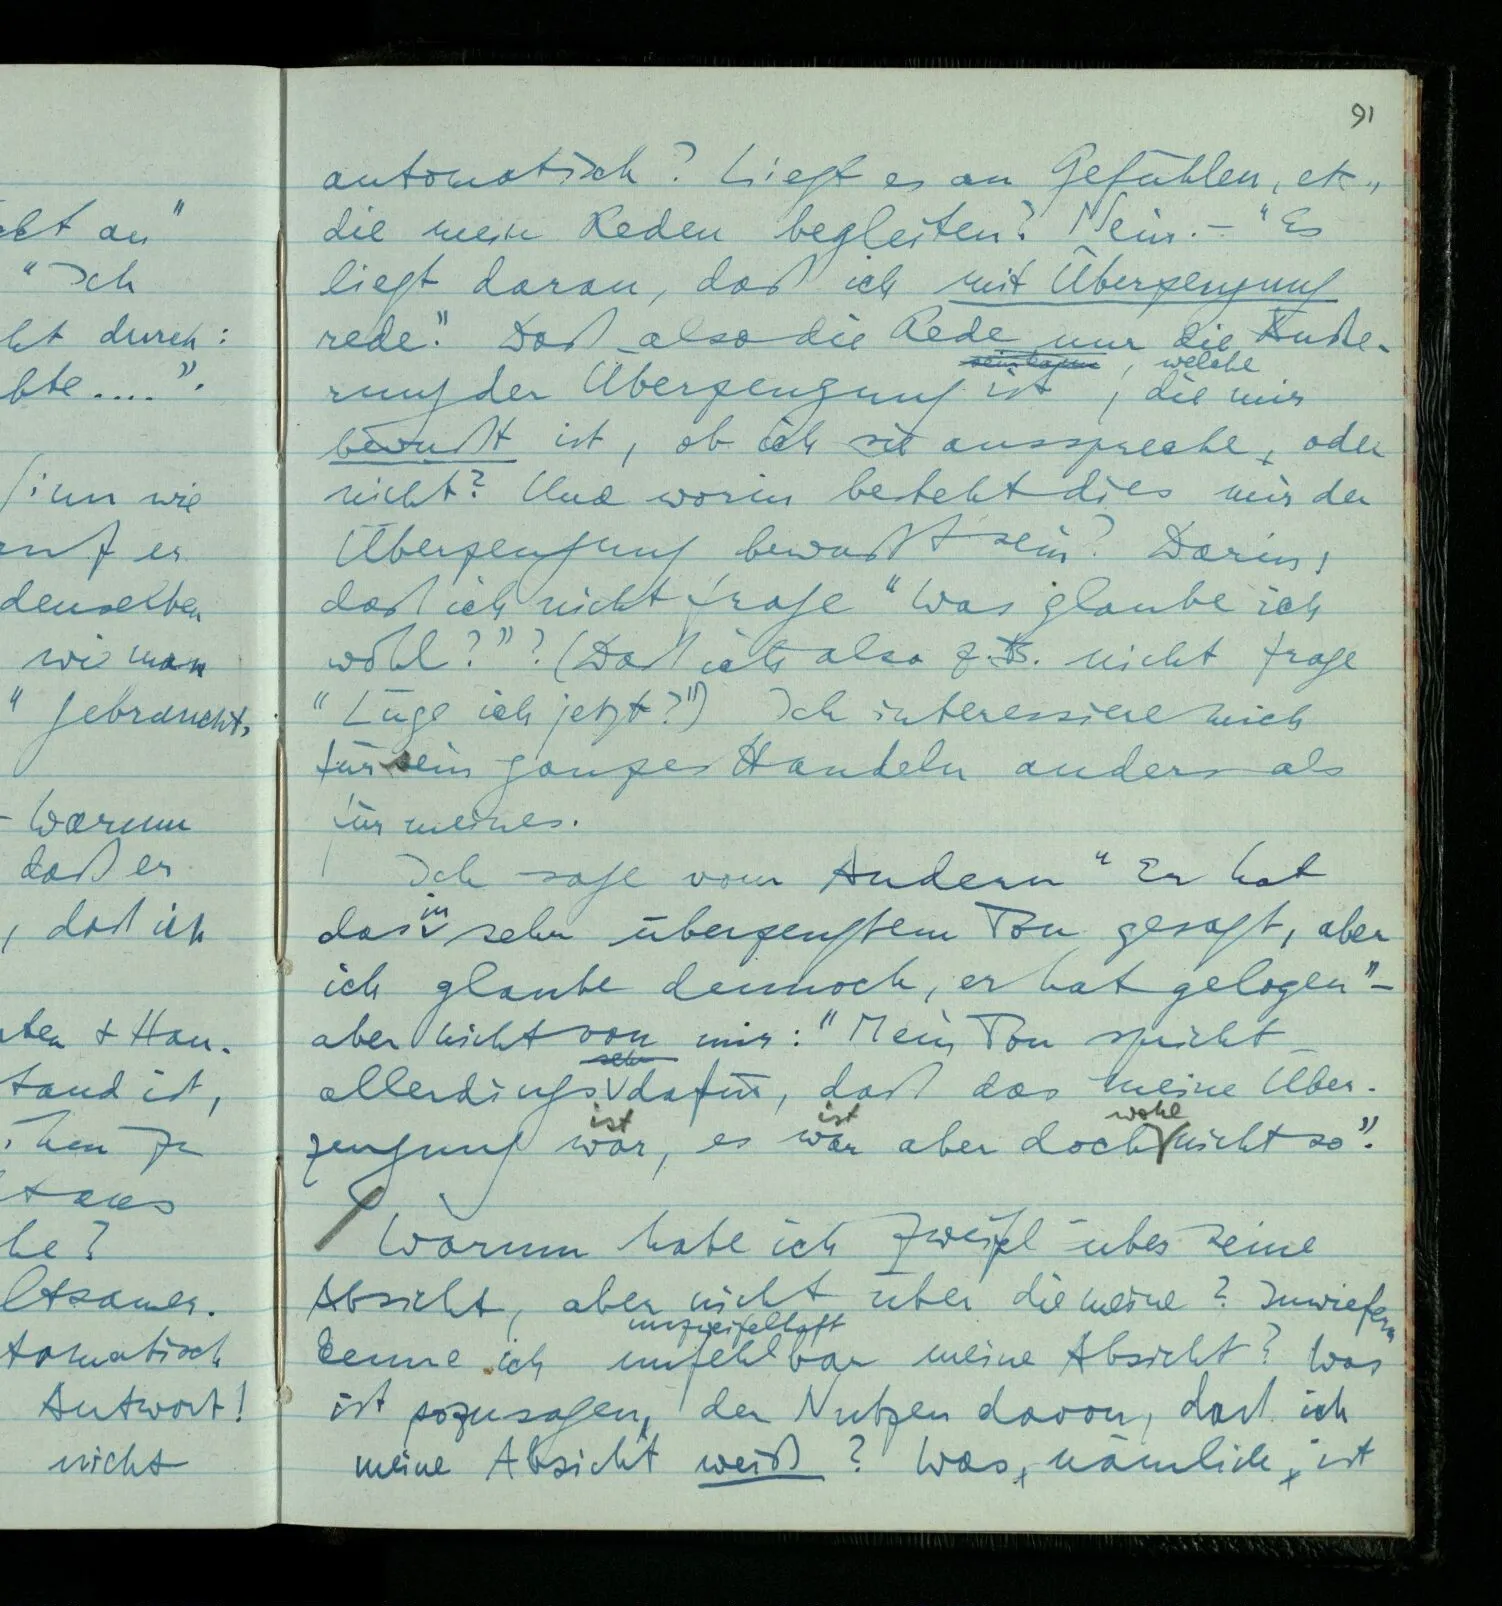 91
ckt an"
"Ich
ht durch:
bte....".
Sinn wie
er
denselben
wie man
" gebraucht,
- Warum
daß er
, daß ich
& Han-
stand ist,
zu
he?
ltsamer.
tomatisch
Antwort!
nicht
automatisch? Liegt es an Gefühlen, etc.,
die mein Reden begleiten? Nein. – "Es
liegt daran, daß ich mit Überzeugung
rede". Daß also die Rede nur die Äuße-
, welche
rung der Überzeugung ist, die mir
bewußt ist, ob ich sie ausspreche, oder
nicht? Und worin besteht dies mir der
Überzeugung bewußt sein? Darin,
daß ich nicht frage "Was glaube ich
wohl?"? (Daß ich also z.B. nicht frage
"Lüge ich jetzt?") Ich interessiere mich
für sein ganzes Handeln anders als
für meines.
Ich sage vom Andern "Er hat
das in sehr überzeugtem Ton gesagt, aber
ich glaube dennoch, er hat gelogen" –
aber nicht von mir: "Mein Ton spricht
sehr
allerdings dafür, daß das meine Über-
ist ist wohl
zeugung war, es war aber doch nicht so".
Warum habe ich Zweifel über seine
Absicht, aber nicht über die meine? Inwiefern
unzweifelhaft
kenne ich unfehlbar meine Absicht? Was
ist sozusagen, der Nutzen davon, daß ich
meine Absicht weiß? Was, nämlich, ist